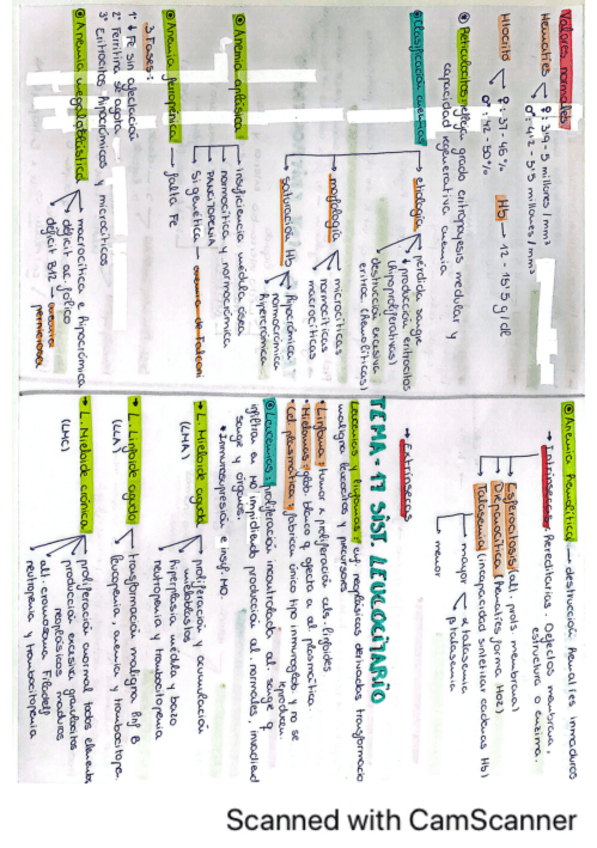 Valores normales
Hematíes ♀: 3'9 - 5 millones / mm³
♂: 4'2 - 5'5 millones / mm³
Htocrito ♀: 37 - 46 %
♂: 42 - 50 %
Hb → 12 - 15'5 g/dl
Reticulocitos: refleja grado eritropoyesis medular y
capacidad regenerativa anemia
Clasificación anemias
etiología → pérdida sangre
↓ producción eritrocitos
(hipoproliferativas)
destrucción excesiva
eritroc. (hemolíticas)
morfología → microcíticas
normocíticas
macrocíticas
saturación Hb → hipocrómica
normocrómica
hipercrómica
Anemia aplásica
insuficiencia médula ósea
normocítica y normocrómica
PANCITOPENIA
Si genética → anemia de Falconi
Anemia ferropénica → falta Fe
3 Fases:
1º ↓ Fe sin afectación
2º Ferritina se agota
3º Eritrocitos hipocrómicos y microcíticos
Anemia megaloblástica
macrocítica e hipocrómica
déficit ac fólico
déficit B12 → anemia
perniciosa
Anemia hemolítica → destrucción hematíes inmaduros
→ Intrínsecas: Hereditarias. Defectos membrana,
estructura o enzima.
Esferocitosis (alt. prots. membrana)
Drepanocítica (hematíes forma Hoz)
Talasemia (incapacidad sintetizar cadenas Hb)
mayor α talasemia
β talasemia
menor
→ Extrínsecas
TEMA - 17 SIST. LEUCOCITARIO
Leucemias y linfomas: enf. neoplásicas derivadas transformacio
maligna leucocitos y precursores
• Linfoma: tumor x proliferación céls. linfoides
• Mieloma: glob. blanco q afecta a cel plasmática.
• Cel. plasmática: fabrican único tipo inmunoglob y no se
reproducen.
Leucemias: proliferación incontrolada cel. sangre q
infiltra en MO impidiendo producción cel. normales, invadiend
sangre y órganos.
• Inmunosupresión e insuf. MO.
→ L. Mieloide aguda
(LMA)
proliferación y acumulación
mieloblastos
hiperplasia médula y bazo
neutropenia y trombocitopenia
→ L. Linfoide aguda
(LLA)
transformación maligna linf B
leucopenia, anemia y trombocitope.
→ L. Mieloide crónica
(LMC)
proliferación anormal todos elementos
producción excesiva granulocitos
neoplásicos maduros
alt. cromosoma Filadelf
neutropenia y trombocitopenia
Scanned with CamScanner